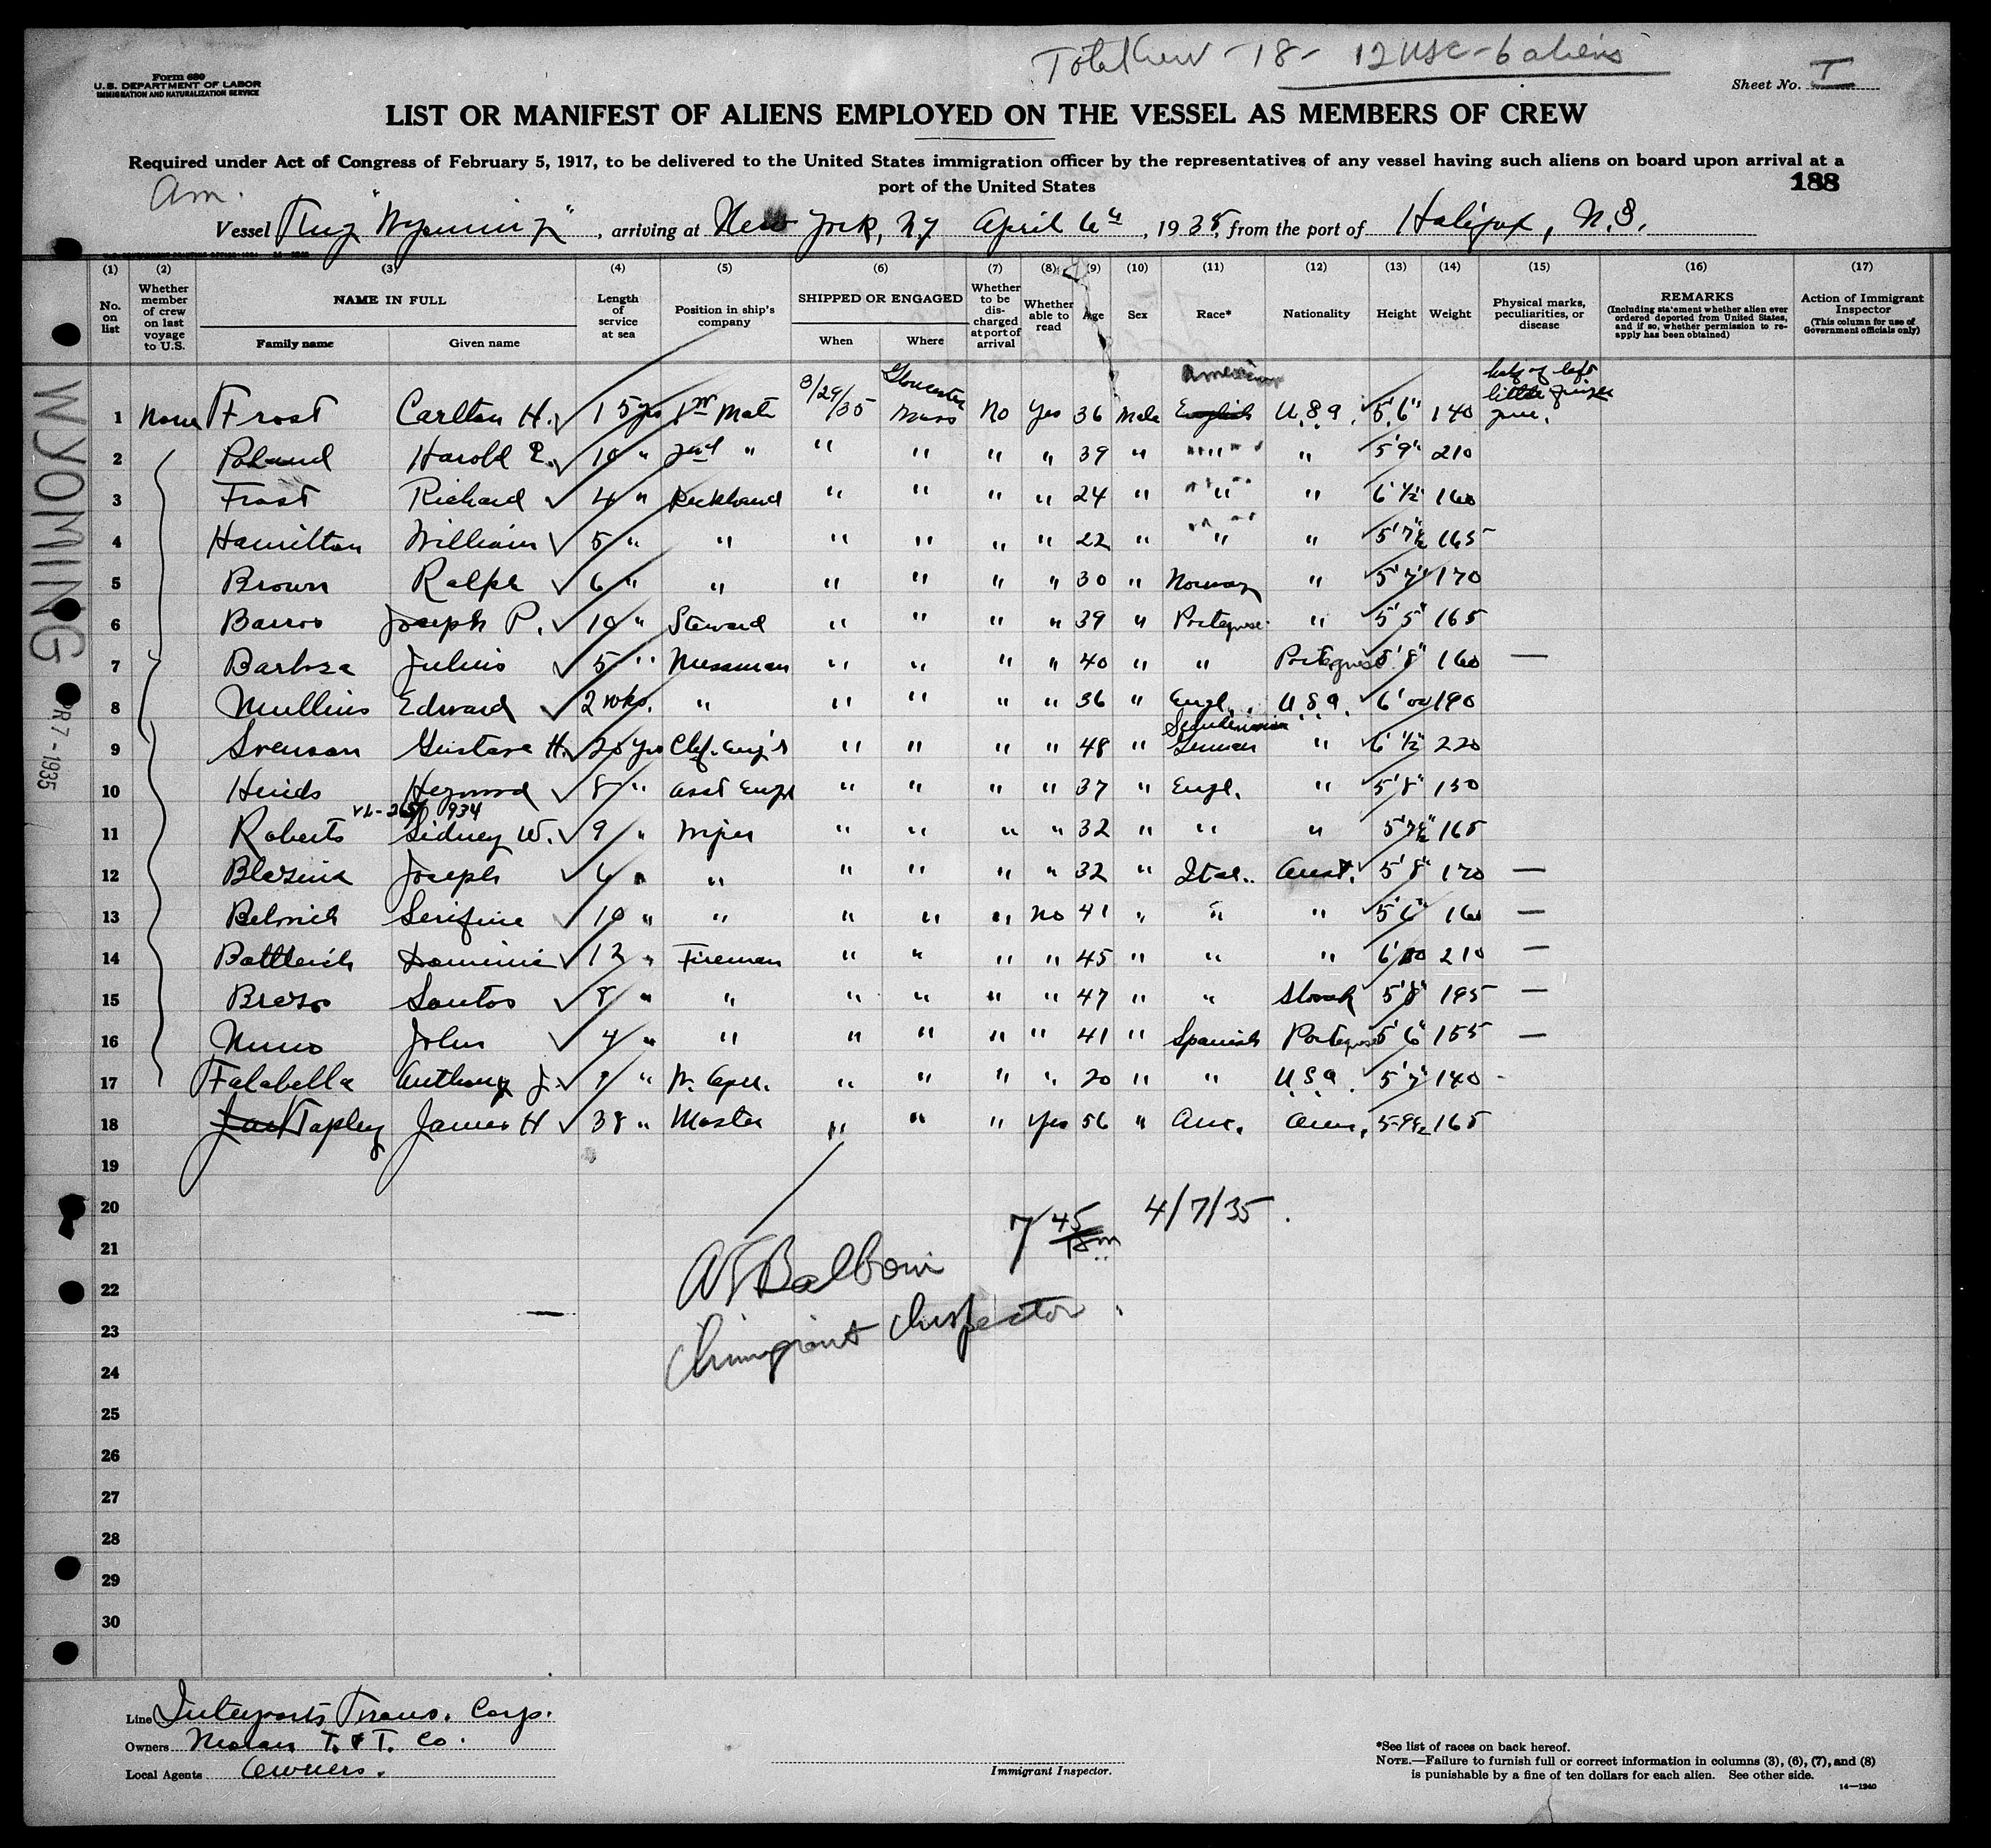 Total Crew - 18 - 12 USC - 6 aliens
Form 680
U.S. DEPARTMENT OF LABOR
IMMIGRATION AND NATURALIZATION SERVICE
Sheet No. I
LIST OR MANIFEST OF ALIENS EMPLOYED ON THE VESSEL AS MEMBERS OF CREW
Required under Act of Congress of February 5, 1917, to be delivered to the United States immigration officer by the representatives of any vessel having such aliens on board upon arrival at a
port of the United States
188
Am.
Vessel Tug "Wyoming", arriving at New York, N.Y. April 6th, 1935, from the port of Halifax, N.S.
(1) (2) (3) (4) (5) (6) (7) (8) (9) (10) (11) (12) (13) (14) (15) (16) (17)
No. on list
Whether member of crew on last voyage to U.S.
NAME IN FULL
Family name Given name
Length of service at sea
Position in ship's company
SHIPPED OR ENGAGED
When Where
Whether to be discharged at port of arrival
Whether able to read
Age
Sex
Race*
Nationality
Height
Weight
Physical marks, peculiarities, or disease
REMARKS
(Including statement whether alien ever ordered deported from United States, and if so, whether permission to reapply has been obtained)
Action of Immigrant Inspector
(This column for use of Government officials only)
1 None Frost Carlton H. 15 yrs 1st Mate 3/29/35 Gloucester Mass No Yes 36 Male American English U.S.A. 5'6" 140 half of left little finger
2 Poland Harold E. 10 " 2nd " " " " " 39 " " " 5'9" 210
3 Frost Richard 4 " Deckhand " " " " 24 " " " 6'½" 160
4 Hamilton William 5 " " " " " " 22 " " " 5'7½ 165
5 Brown Ralph 6 " " " " " " 30 " Norway " 5'7" 170
6 Barros Joseph P. 10 " Steward " " " " 39 " Portuguese " 5'5" 165
7 Barboza Julius 5 " Messman " " " " 40 " " Portuguese 5'8" 160 —
8 Mullins Edward 2 wks. " " " " " 36 " Engl. U.S.A. 6'00 190
9 Svenson Gustave H. 20 yrs Chf. Eng'r " " " " 48 " Scandinavian German " 6'½" 220
10 Hinds Heywood 8 " Asst Engr " " " " 37 " Engl. " 5'8" 150
11 Roberts Sidney W. 9 " Wiper " " " " 32 " " " 5'7½" 165
12 Blazina Joseph 6 " " " " " " 32 " Ital. Aust. 5'8" 170 —
13 Serifine 10 " " " " " No 41 " " " 5'6" 160 —
14 Dominic 12 " Fireman " " " " 45 " " " 6' 210 —
15 Santos 8 " " " " " " 47 " " Slovak 5'8" 195 —
16 Nuno John 4 " " " " " " 41 " Spanish Portuguese 5'6" 155 —
17 Falabella Anthony J. " W. Oper. " " " " 20 " " U.S.A. 5'7" 140 -
18 Tapley James H 38 " Master " " " Yes 56 " Am. Amer. 5-9½ 165
19
20
21
22
23
24
25
26
27
28
29
30
7 45 4/7/35.
Immigrant Inspector
WYOMING
R 7 - 1935
Line Interports Trans. Corp.
Owners Moran T. & T. Co.
Local Agents Owners.
Immigrant Inspector.
*See list of races on back hereof.
NOTE.—Failure to furnish full or correct information in columns (3), (6), (7), and (8)
is punishable by a fine of ten dollars for each alien. See other side.
14—1240